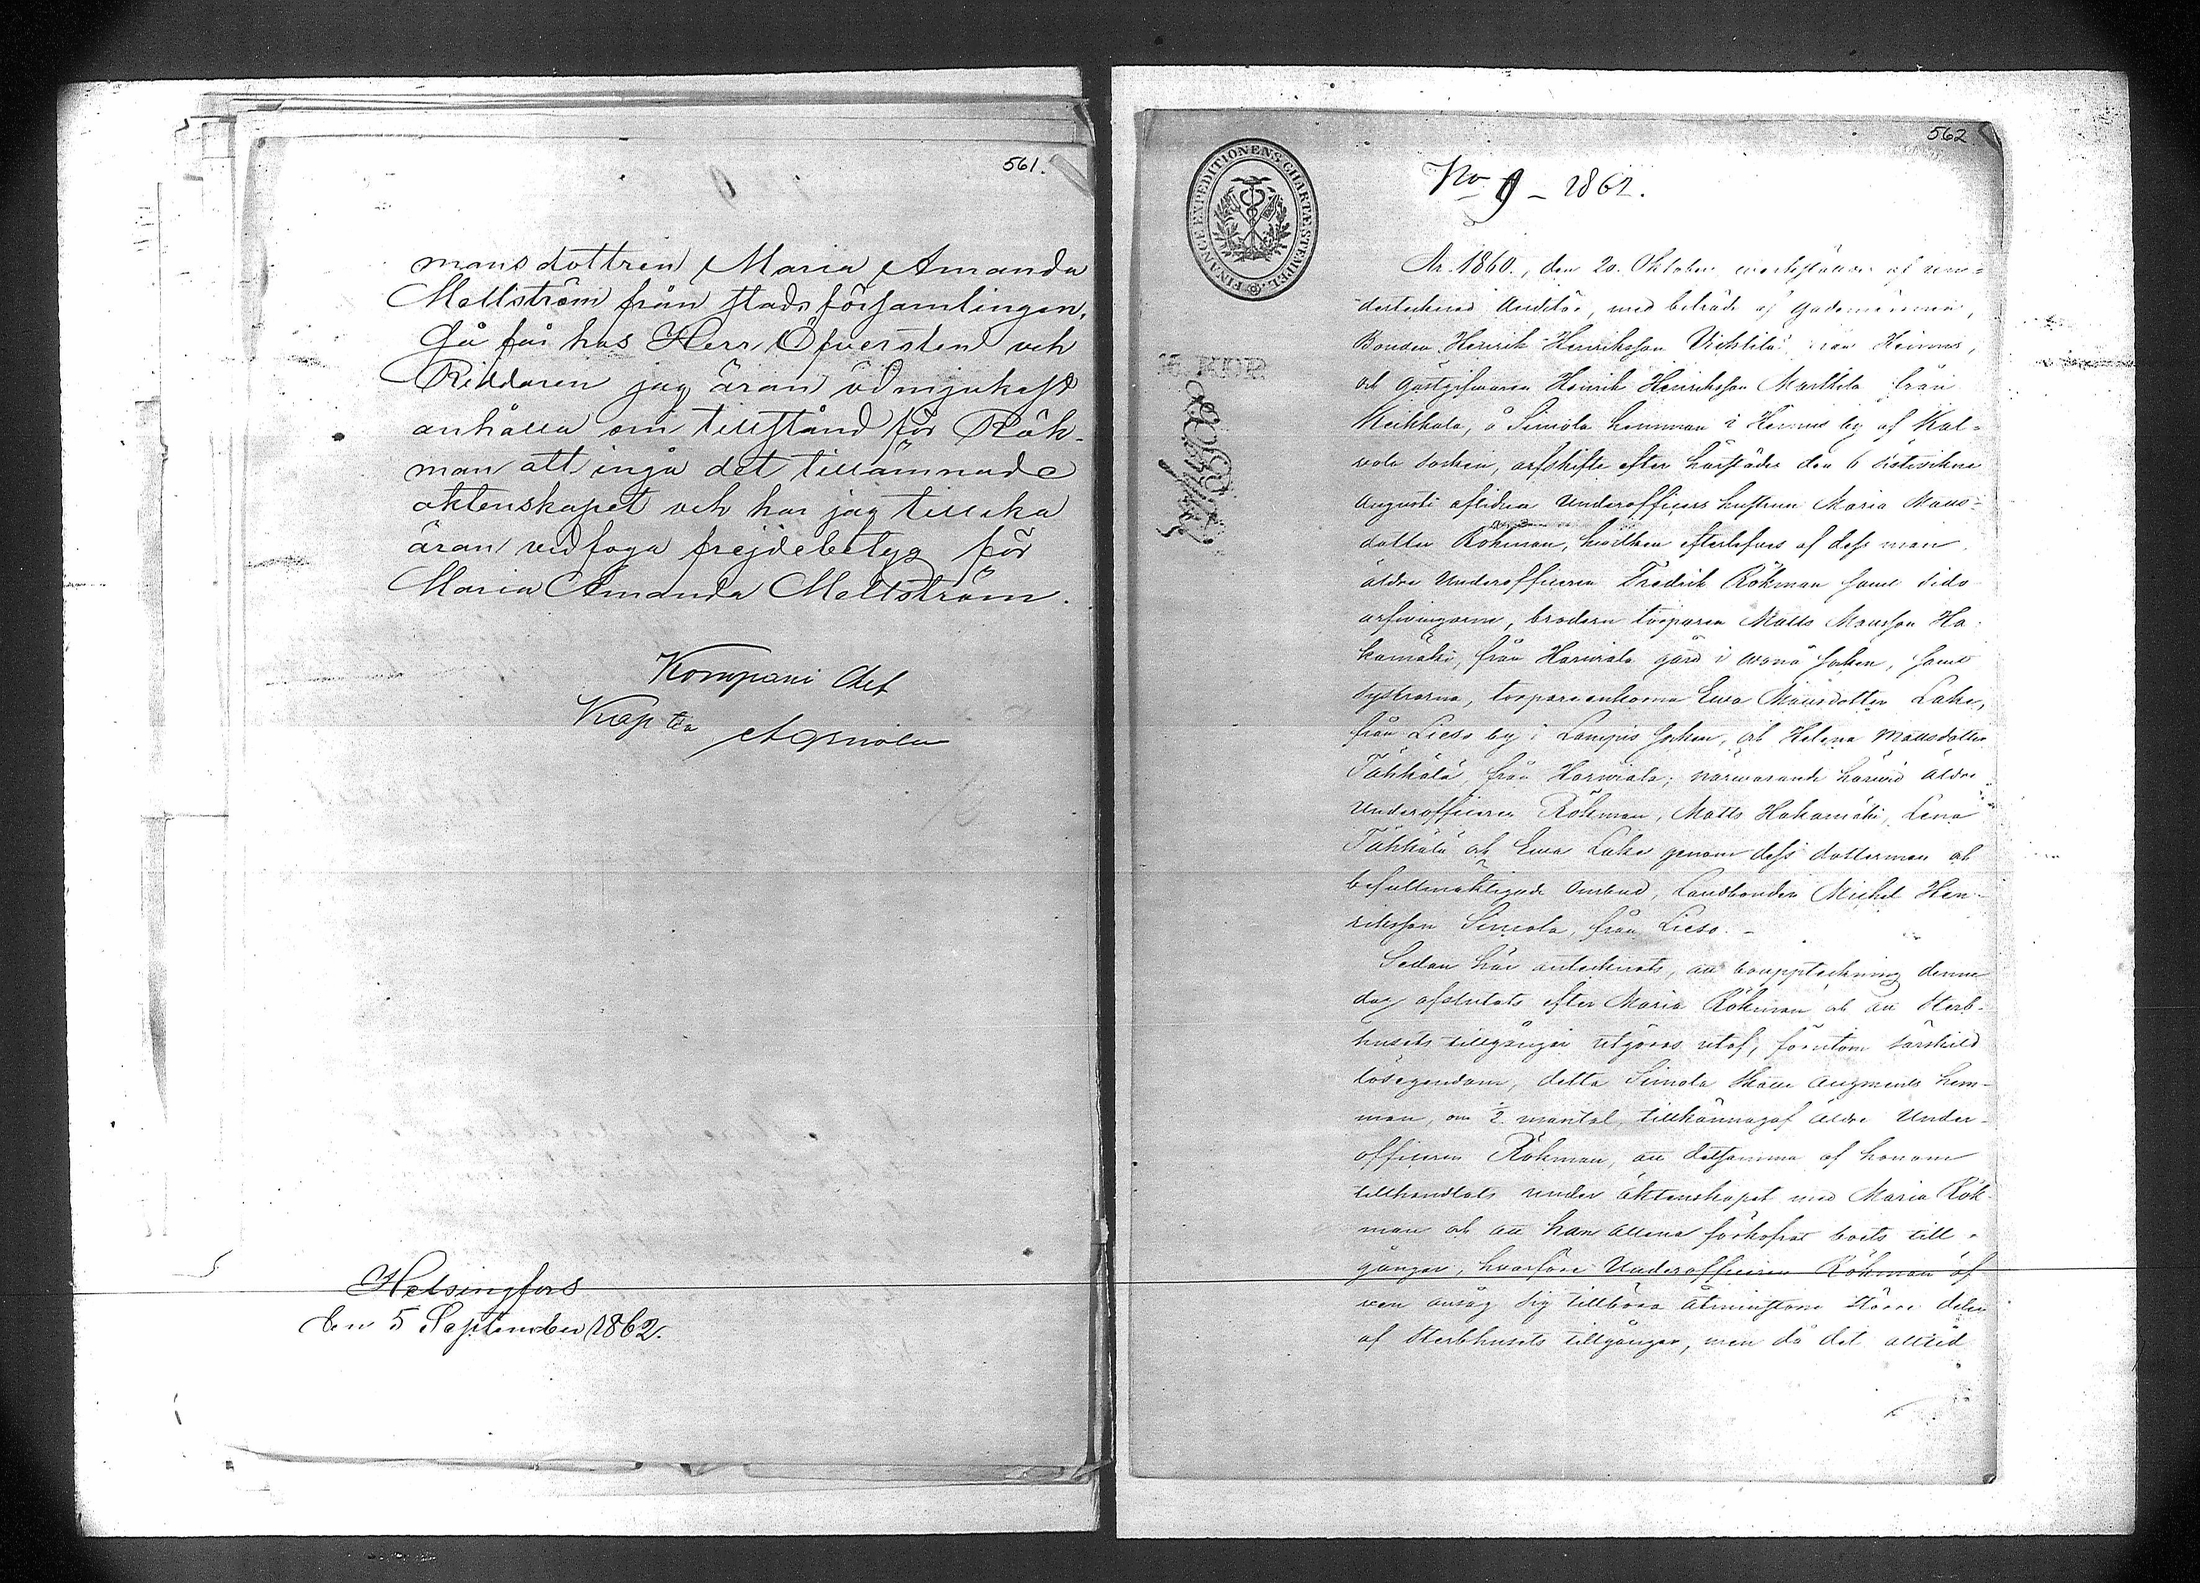 561.
mansdottren Maria Amanda
Mellström från stadsförsamlingen.
Gå får hos Herr Öfversten och
Riddaren jag äran ödmjukast
anhålla om tillstånd för Rök-
man att ingå det tillämnade
äktenskapet och har jag tillika
äran vidfoga frejdebetyg för
Maria Amanda Mellström.
Kompani Chef
Kapten
Helsingfors
den 5 September 1862.
562
FINANCEEXPEDITIONENS CHARTÆSTEMPEL
No 9 - 1862.
År 1860, den 20 Oktober af un-
dertecknad Auditör, med beträde af Godemännen,
Bonden Henrik Henriksson från
och Gästgifvaren Henrik Henriksson Marttila från
Heikkala, å Simola hemman i by af Kal-
vola socken, arfskifte efter härstädes den 6 sistvikne
Augusti aflidna Underofficers hustrun Maria Mans-
dotter Rökman, hvilken efterlefves af dess man
äldre Underofficeren Fredrik Rökman samt sido
arfvingarne, brodern torparen Matts Mansson Ha-
kamäki, från Harviala gård i Wånå socken, samt
systrarna, torpareenkorna Ewa Mansdotter Lake,
från Lieso by i Lampis socken, och Helena Mansdotter
från Harviala; närvarande härvid äldre
Underofficeren Rökman, Matts Hakamäki, Lena
och Ewa Lake genom dess dotterman och
befullmäktigade Ombud, Landbonden Michel Hen-
riksson Simola, från Lieso. -
Sedan här antecknats, att bouppteckning denne
dag afslutats efter Maria Rökman och att Sterb-
husets tillgångar utgöras utaf, förutom särskild
lösegendom, detta Simola Skatte Augments hem-
man, om 1/2 mantal, tillkännagaf äldre Under-
officeren Rökman, att detsamma af honom
tillhandlats under äktenskapet med Maria Rök-
man och att han allena förkofrat boets till-
gångar, hvarföre Underofficeren Rökman äf-
ven ansåg sig tillböra åtminstone större delen
af Sterbhusets tillgångar, men då det alltid